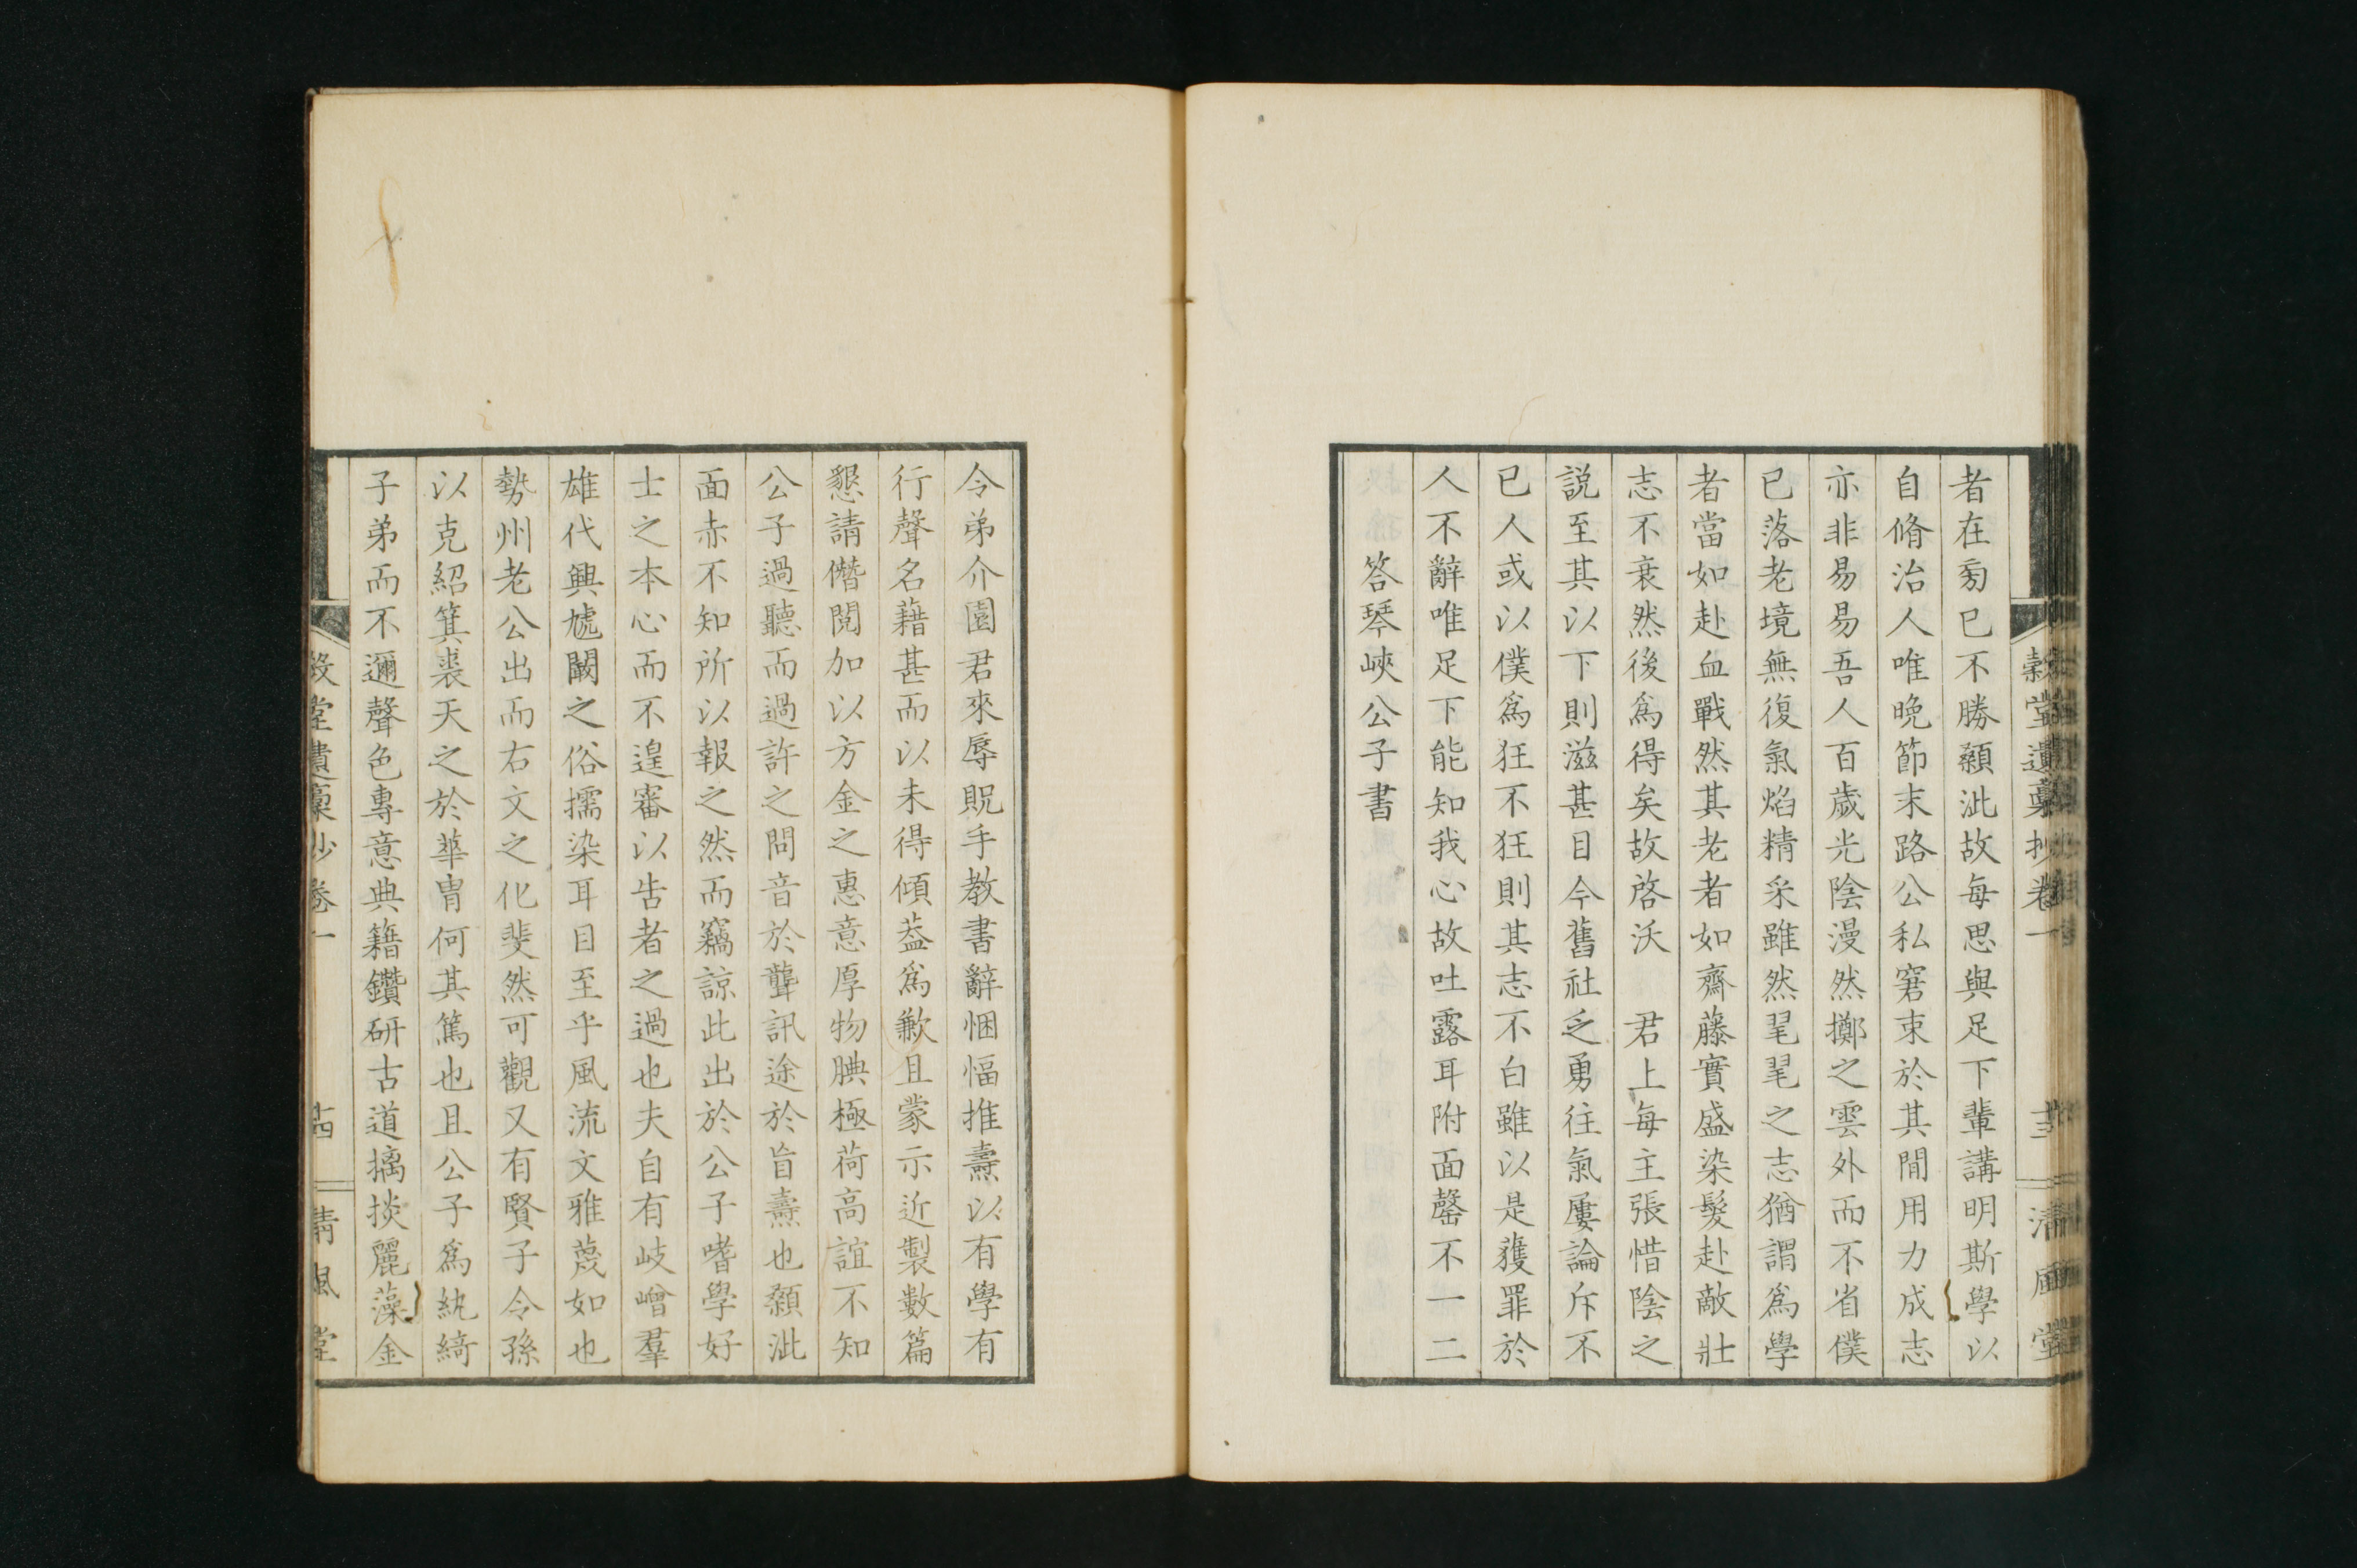 穀堂遺稾抄卷一
十三
清風堂
者在匈已不勝顙泚故每思與足下輩講明斯學以
自脩治人唯晩節末路公私窘束於其間用力成志
亦非易易吾人百歲光陰漫然擲之雲外而不省僕
已落老境無復氣焰精采雖然毣毣之志猶謂爲學
者當如赴血戰然其老者如齋藤實盛染髮赴敵壯
志不衰然後爲得矣故啓沃　君上每主張惜陰之
説至其以下則滋甚目今舊社乏勇往氣屢論斥不
已人或以僕爲狂不狂則其志不白雖以是獲罪於
人不辭唯足下能知我心故吐露耳附面罄不一二
答琴峽公子書
令弟介園君來辱貺手教書辭悃愊推壽以有學有
行聲名藉甚而以未得傾葢爲歉且蒙示近製數篇
懇請僭閲加以方金之惠意厚物腆極荷高誼不知
公子過聽而過許之問音於聾訊途於盲壽也顙泚
面赤不知所以報之然而竊諒此出於公子嗜學好
士之本心而不遑審以告者之過也夫自有岐嶒羣
雄代興虓闞之俗擩染耳目至乎風流文雅蔑如也
勢州老公出而右文之化斐然可觀又有賢子令孫
以克紹箕裘天之於華冑何其篤也且公子爲紈綺
子弟而不邇聲色專意典籍鑽研古道摛掞麗藻金
穀堂遺稾抄卷一
十四
清風堂